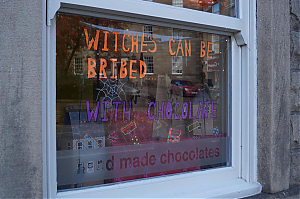 WITCHES CAN BE
BRIBED
WITH CHOCOLATE
hand made chocolates